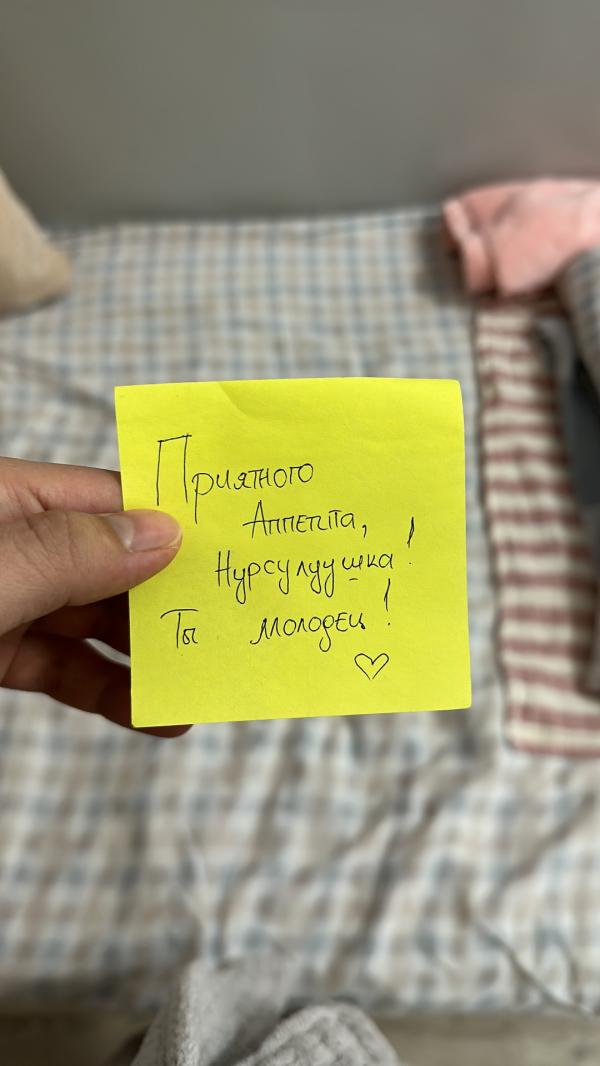 Приятного
Аппетита,
Нурсулуушка!
Ты молодец!